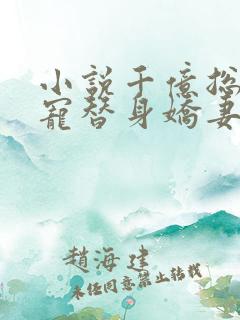 小說千億總
寵替身嬌妻
趙海建
未经同意禁止转载